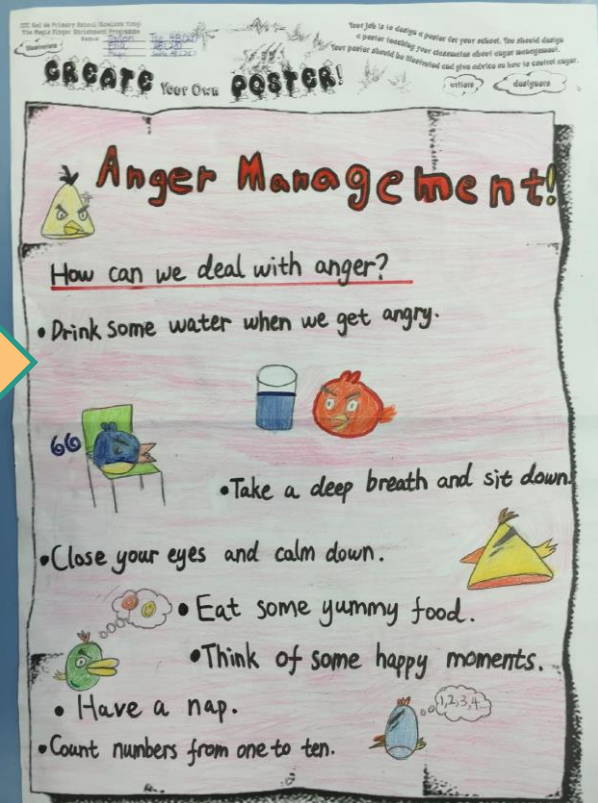 The Magic Finger Enrichment Programme
Your job is to design a poster for your school. You should design
a poster teaching your classmates about anger management.
Your poster should be illustrated and give advice on how to control anger.
illustrators
writers
designers
CREATE Your Own POSTER!
Anger Management!
How can we deal with anger?
•Drink some water when we get angry.
•Take a deep breath and sit down.
•Close your eyes and calm down.
•Eat some yummy food.
•Think of some happy moments.
•Have a nap.
1,2,3,4
•Count numbers from one to ten.